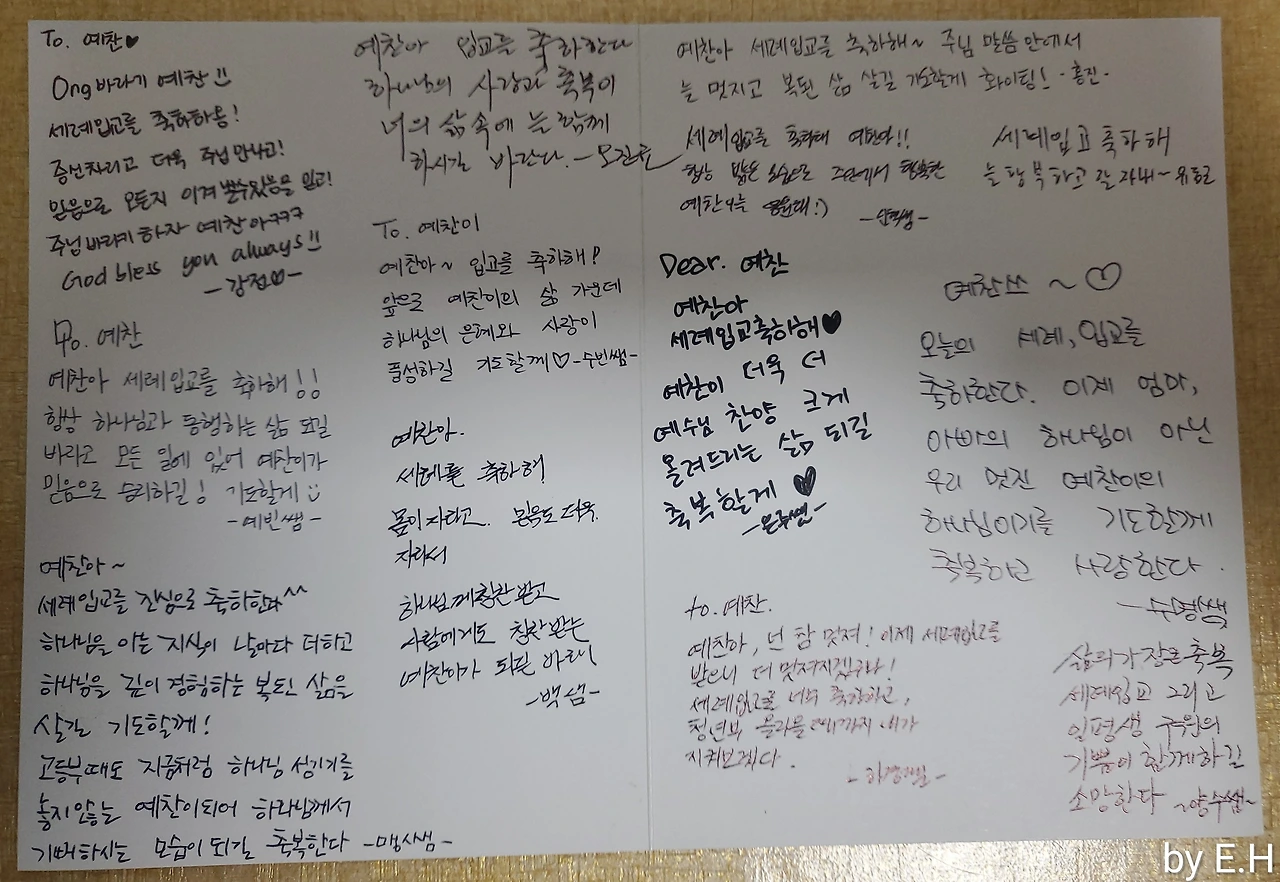 To. 예찬♥
Ong바라기 예찬!!
세례입교를 축하하용!
정신차리고 더욱 주님 만나고!
믿음으로 모든지 이겨 낼수있음을 믿고!
주님바라기 하자 예찬아ㅋㅋㅋ
God bless you always!!
To. 예찬
예찬아 세례입교를 축하해!!
항상 하나님과 동행하는 삶 되길
바라고 모든 일에 있어 예찬이가
믿음으로 승리하길! 기도할게
-예빈쌤-
예찬아~
세례입교를 진심으로 축하한다^^
하나님을 아는 지식이 날마다 더하고
하나님을 깊이 경험하는 복된 삶을
살길 기도할께!
고등부때도 지금처럼 하나님 섬기기를
놓지않는 예찬이되어 하나님께서
기뻐하시는 모습이 되길 축복한다
예찬아 입교를 축하한다
하나님의 사랑과 축복이
너의 삶 속에 늘 함께
하시길 바란다.
To. 예찬이
예찬아~ 입교를 축하해!
앞으로 예찬이의 삶 가운데
하나님의 은혜와 사랑이
풍성하길 기도할께♡-수빈쌤-
예찬아.
세례를 축하해!
몸이 자라고 믿음도 더욱
자라서
하나님께 칭찬 받고
사람에게도 칭찬 받는
예찬이가 되길 바래!
-백쌤-
예찬아 세례입교를 축하해~ 주님 말씀 안에서
늘 멋지고 복된 삶 살길 기도할게 화이팅! -홍진-
세례입교를 축하해 예찬아!!
항상 밝은 모습으로
예찬
세례입교 축하해
늘 행복하고 잘 지내~
Dear. 예찬
예찬아
세례입교축하해♥
예찬이 더욱 더
예수님 찬양 크게
올려드리는 삶 되길
축복할게 ♥
예찬쓰 ~ ♡
오늘의 세례, 입교를
축하한다. 이제 엄마,
아빠의 하나님이 아닌
우리 멋진 예찬이의
하나님이기를 기도할게
축복하고 사랑한다.
-수영쌤
to. 예찬.
예찬아, 넌 참 멋져! 이제 세례입교를
받으니 더 멋져지겠구나!
세례입교를 너무 축하하고,
청년부 올라올때까지 내가
지켜보겠다.
삶의 가장 큰 축복
세례입교 그리고
일평생 구원의
기쁨이 함께하길
소망한다 ~양수쌤~
by E.H